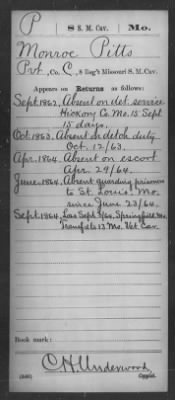 P 8 S. M. Cav. Mo.
Monroe Pitts
Pvt, Co. C, 8 Reg't Missouri S. M. Cav.
Appears on Returns as follows:
Sept. 1862, Absent on det. service
Hickory Co. Mo. 15 Sept
15 days.
Oct. 1863. Absent on detch duty
Oct. 12/63.
Apr. 1864. Absent on escort
Apr. 29/64.
June 1864. Absent guarding prisoners
to St. Louis, Mo.
since June 23/64.
Sept. 1864. Loss Sept 9/64, Springfield Mo.
Transf'd to 13 Mo. Vet Cav.
Book mark:
C. H. Underwood
Copyist.